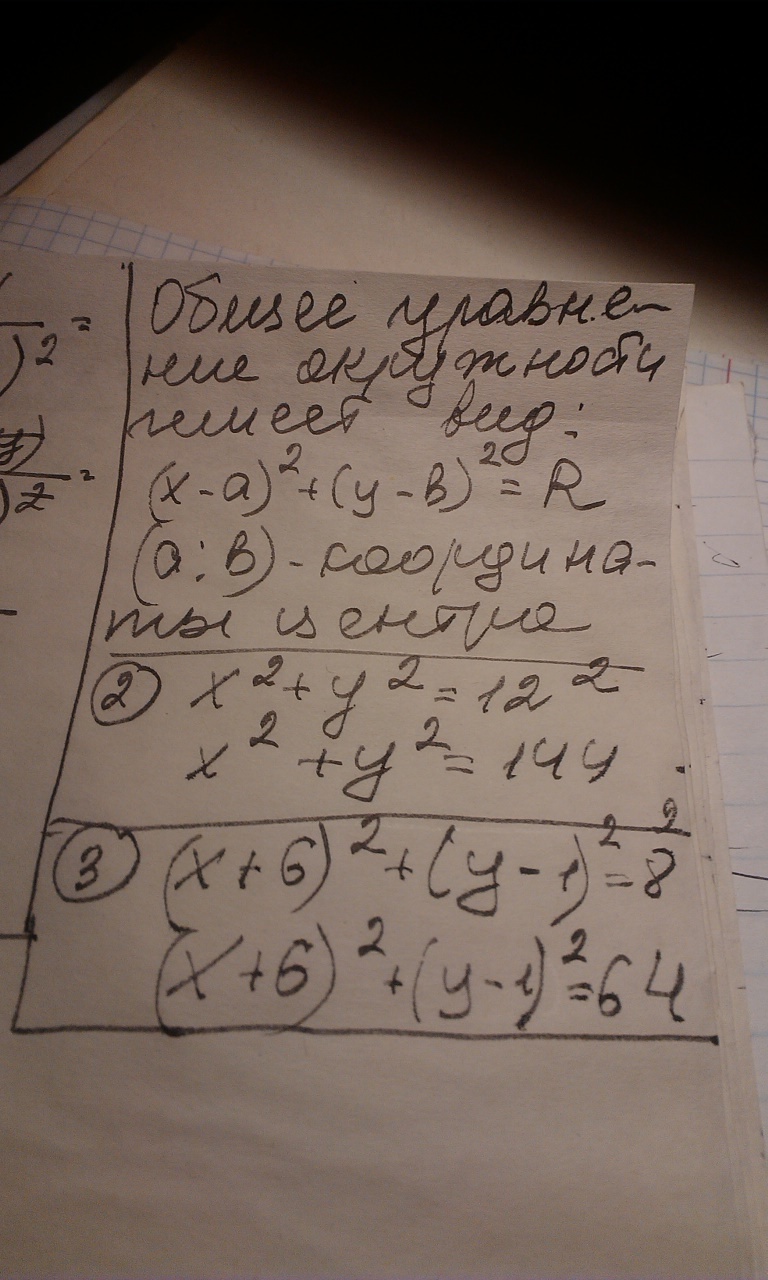 Общее уравне-
ние окружности
имеет вид:
(x-a)²+(y-в)²=R
(a;в)-координа-
ты центра
② x²+y²=12²
x²+y²=144
③ (x+6)²+(y-1)²=8²
(x+6)²+(y-1)²=64
=
)²
=